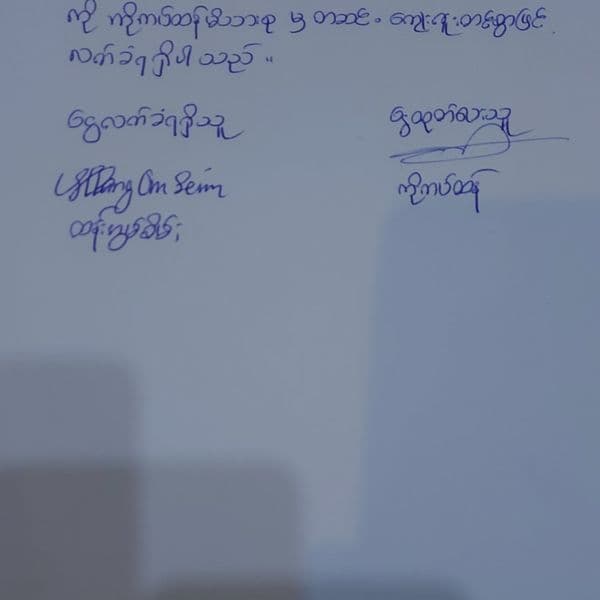 ကို ကိုကပ်ထန် မိသားစု မှ တဆင့် ကျေးဇူးတင်စွာဖြင့်
လက်ခံရရှိပါသည်။
ငွေလက်ခံရရှိသူ
ငွေထုတ်ပေးသူ
Om Seim
ကိုကပ်ထန်